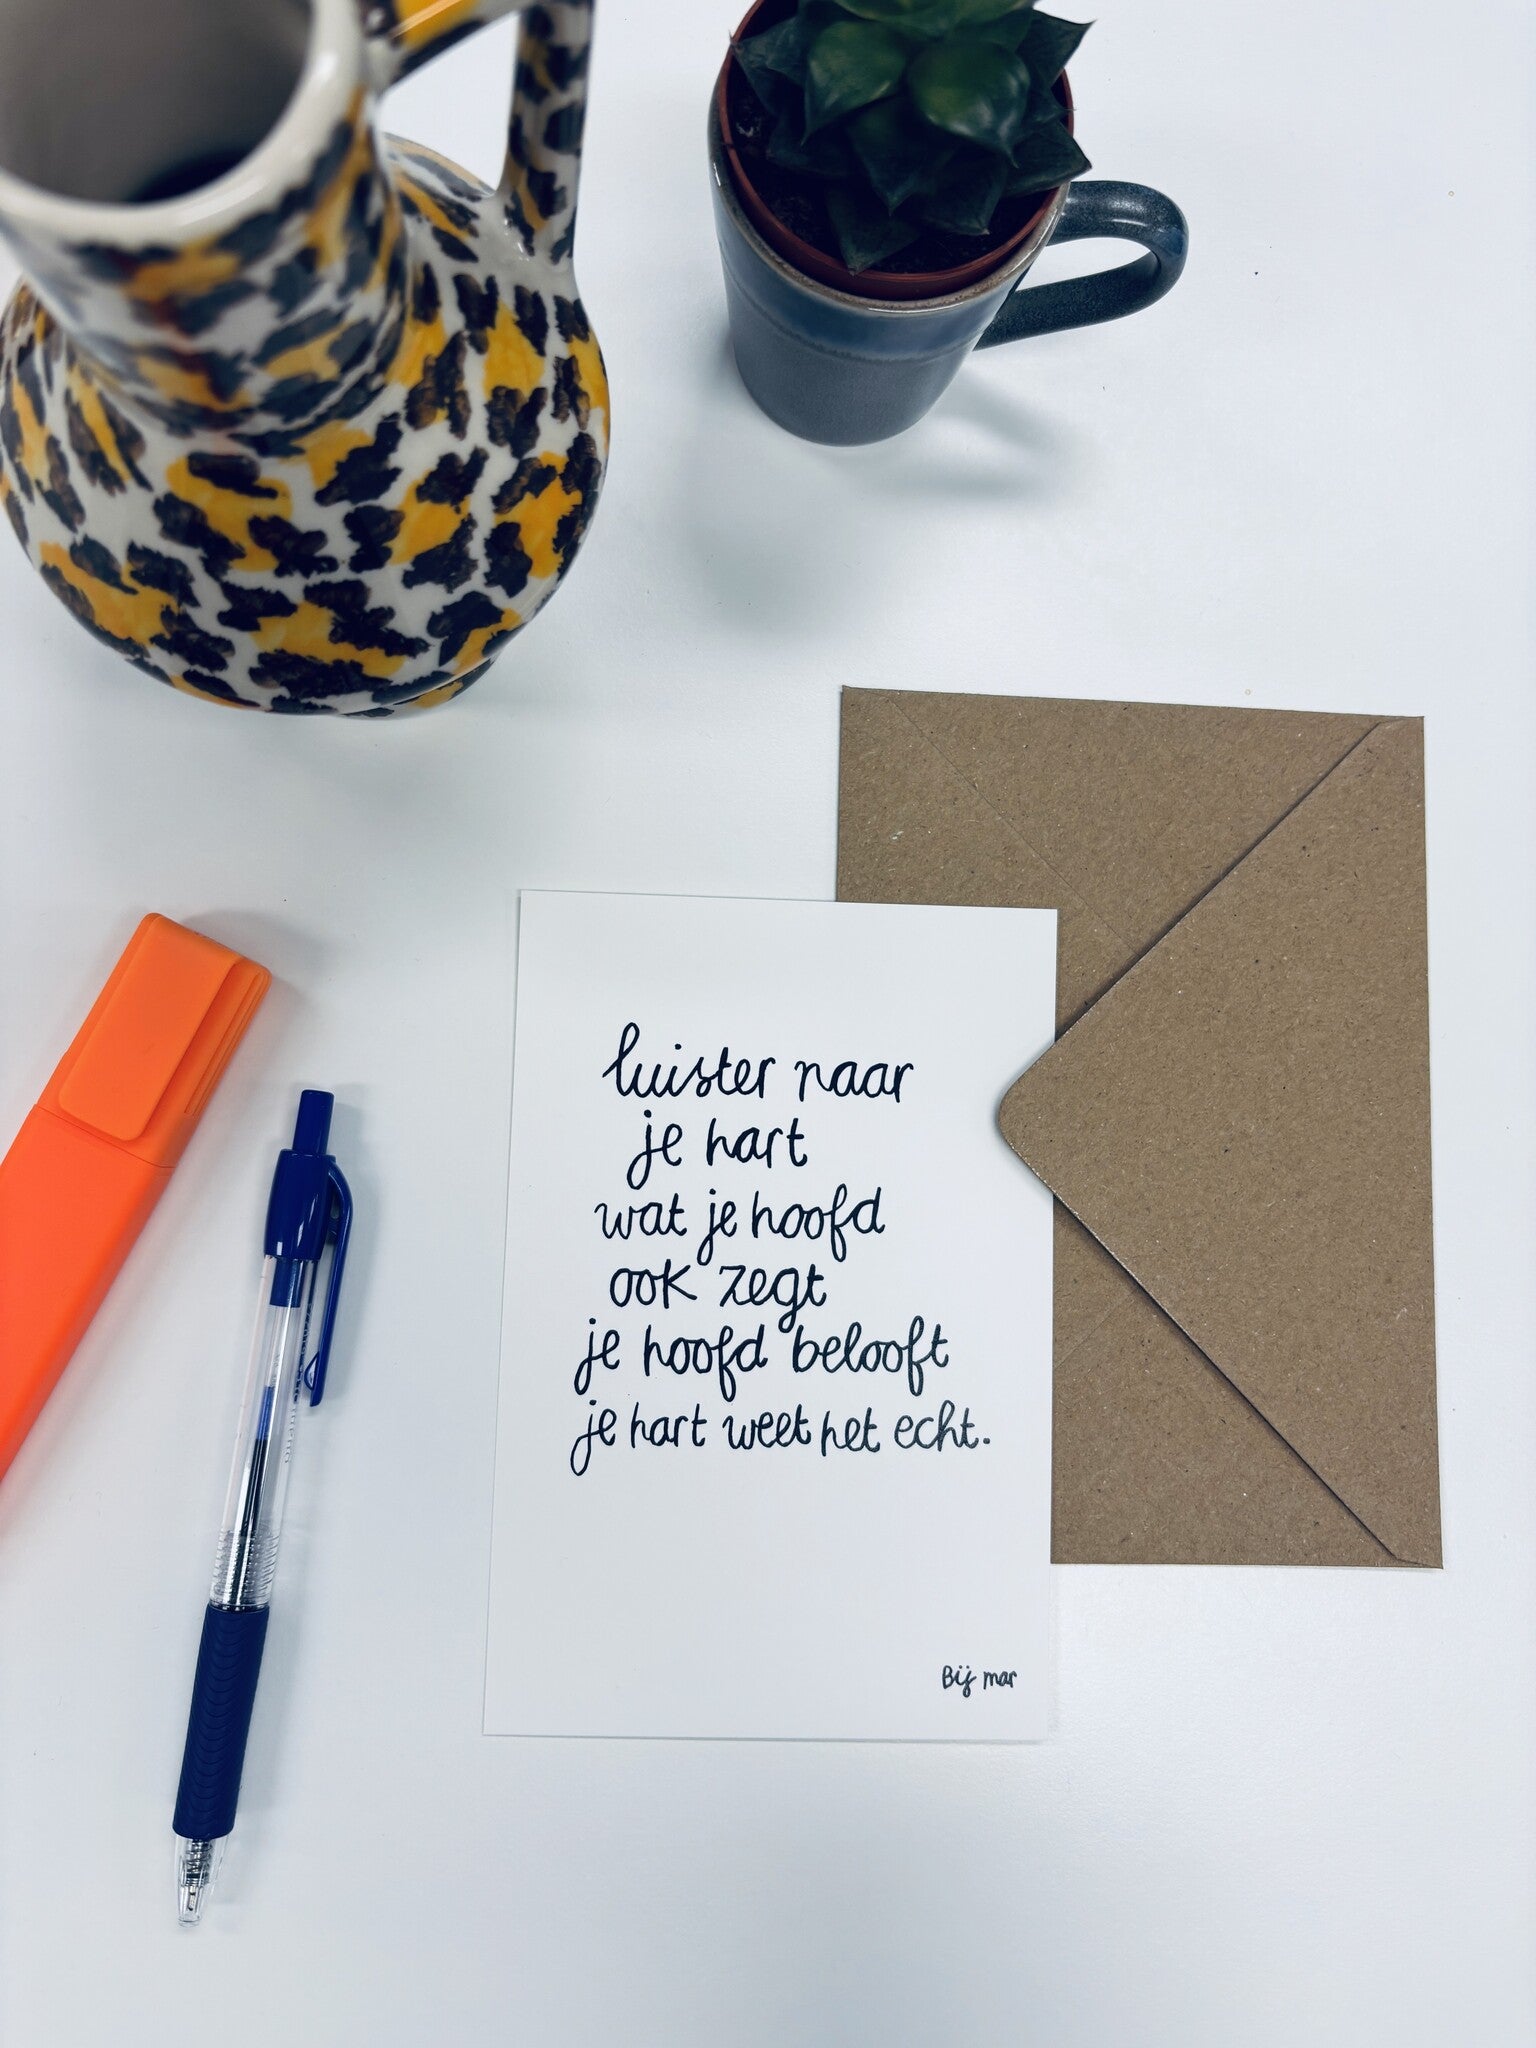 luister naar
je hart
wat je hoofd
ook zegt
je hoofd belooft
je hart weet het echt.
Bij mar